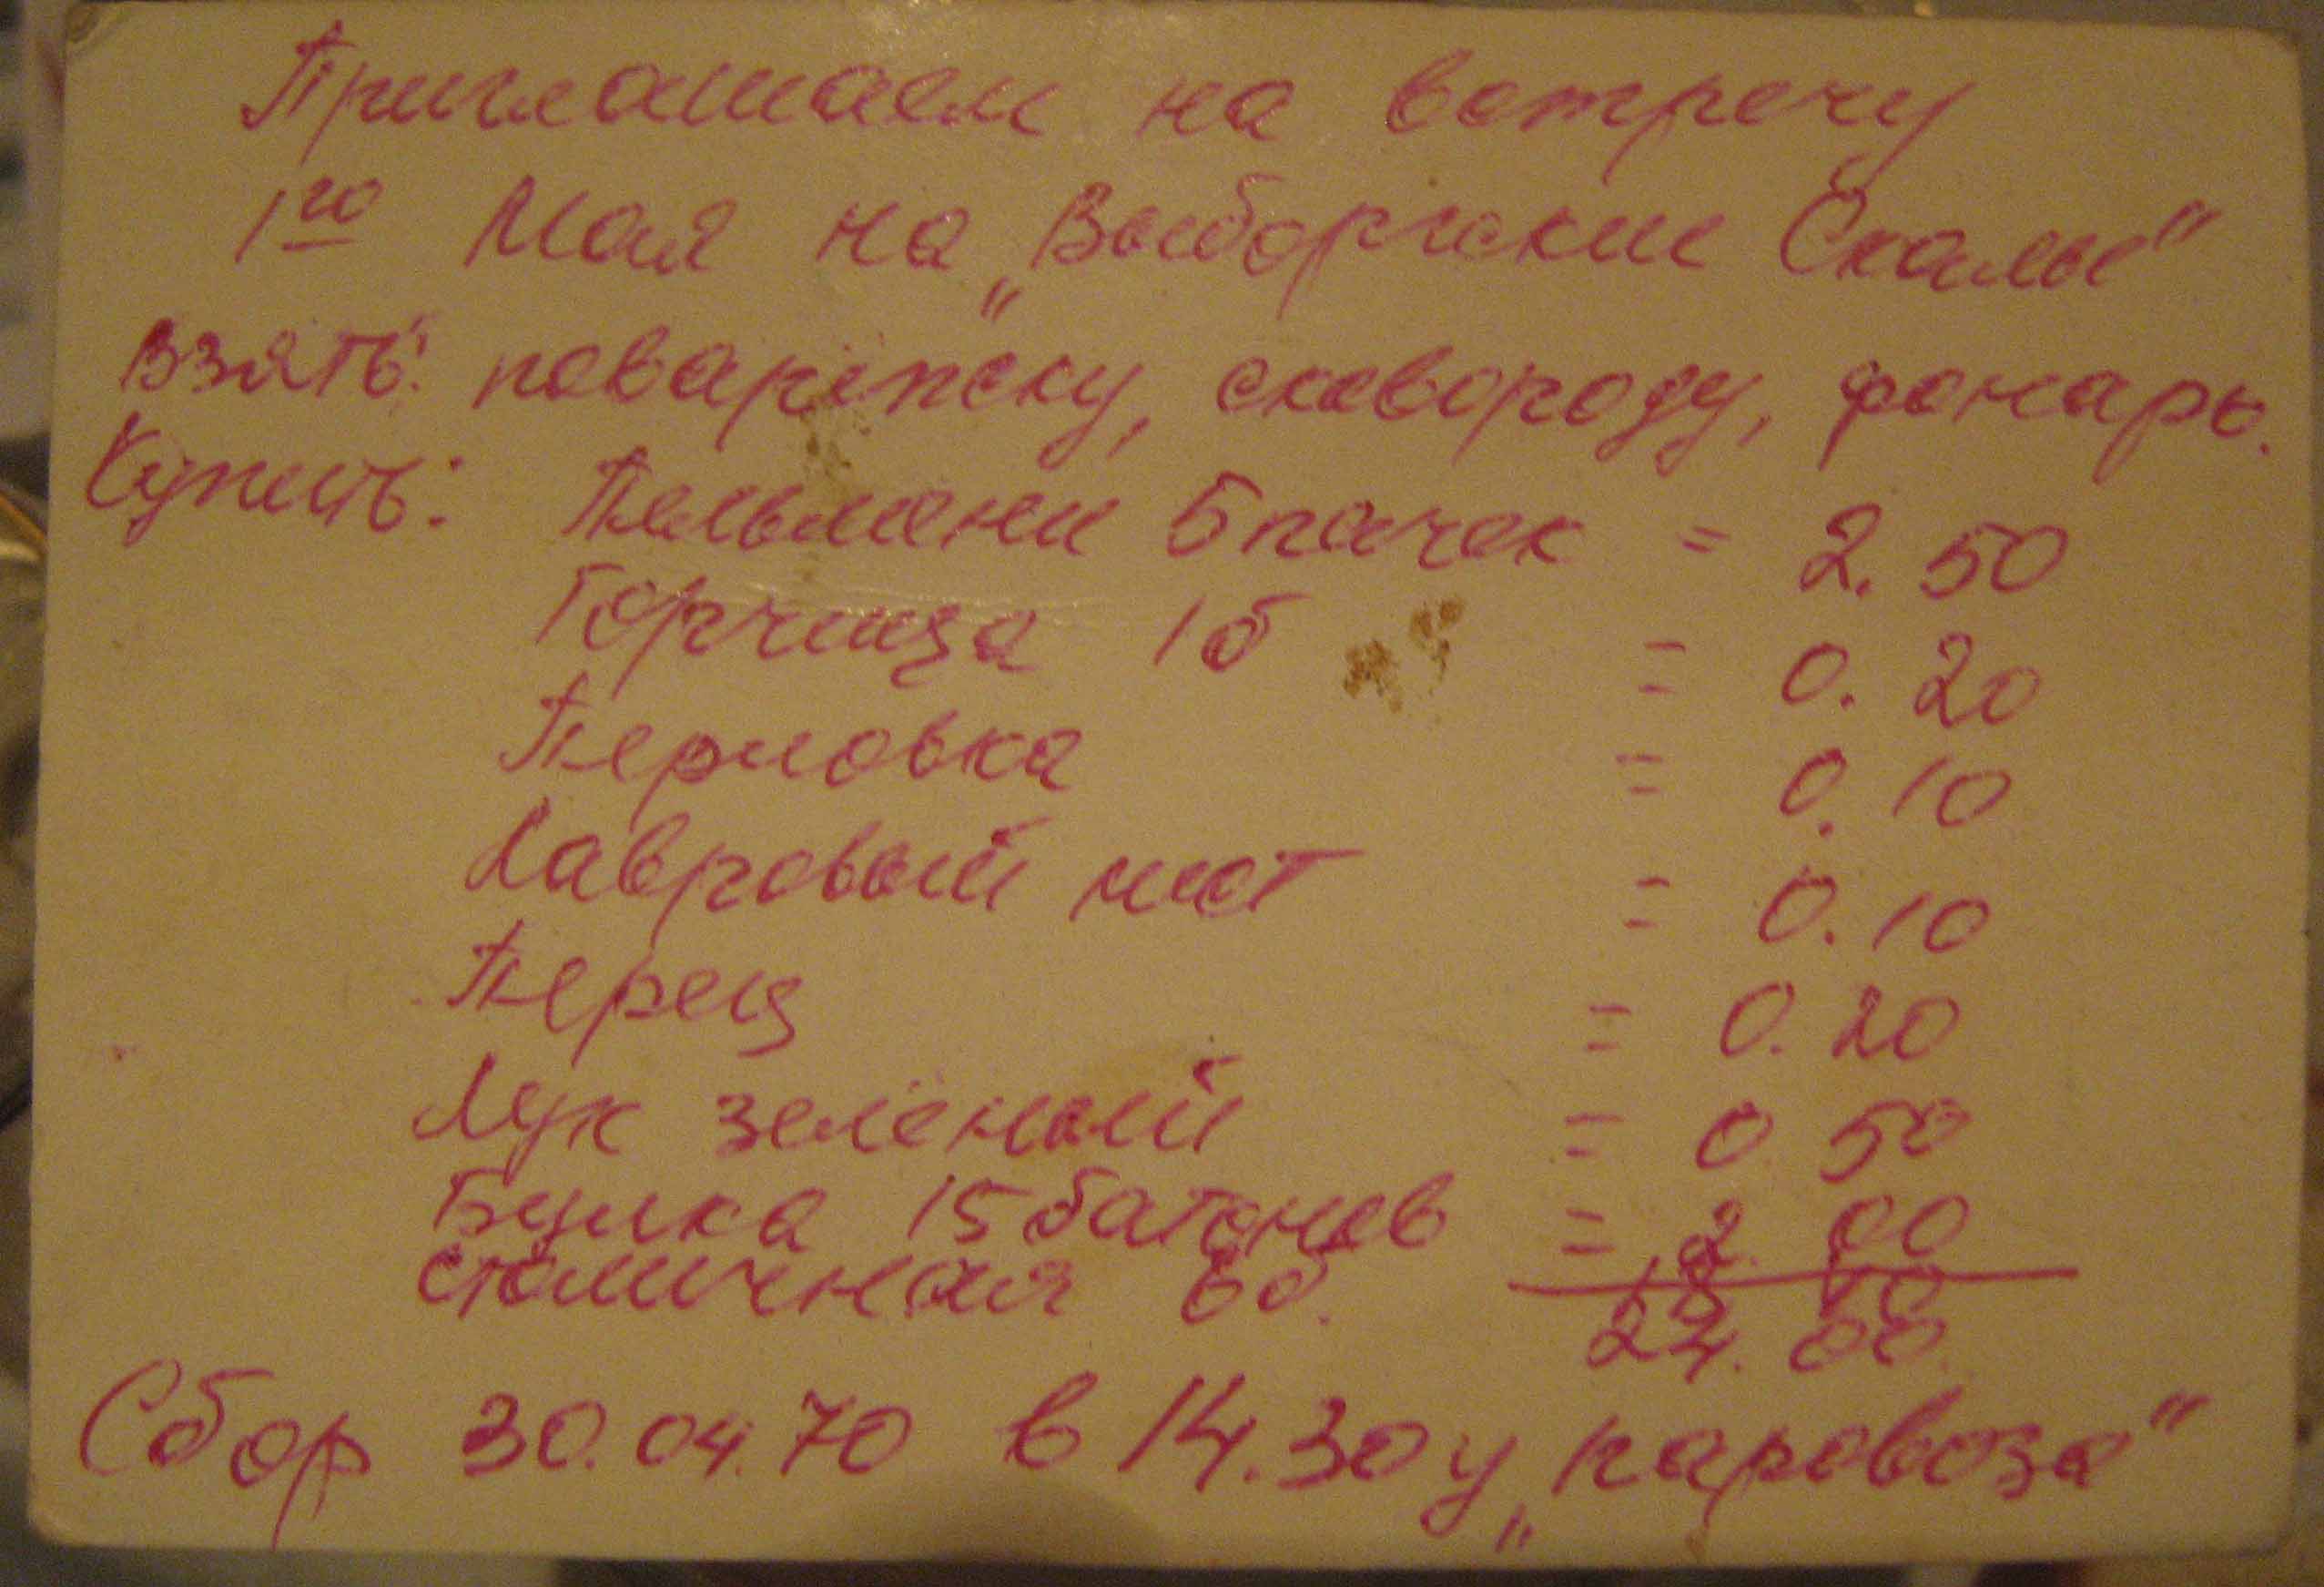 Приглашаем на встречу
1го Мая на „Выборгские Скалы"
Взять: поварёшку, сковороду, фонарь.
Купить: Пельмени 5 пачек = 2.50
Горчица 1б = 0.20
Перловка = 0.10
Лавровый лист = 0.10
Перец = 0.20
Лук зелёный = 0.50
Булка 15 батонов = 2.00
столичная 6б.
Сбор 30.04.70 в 14.30 у „паровоза"